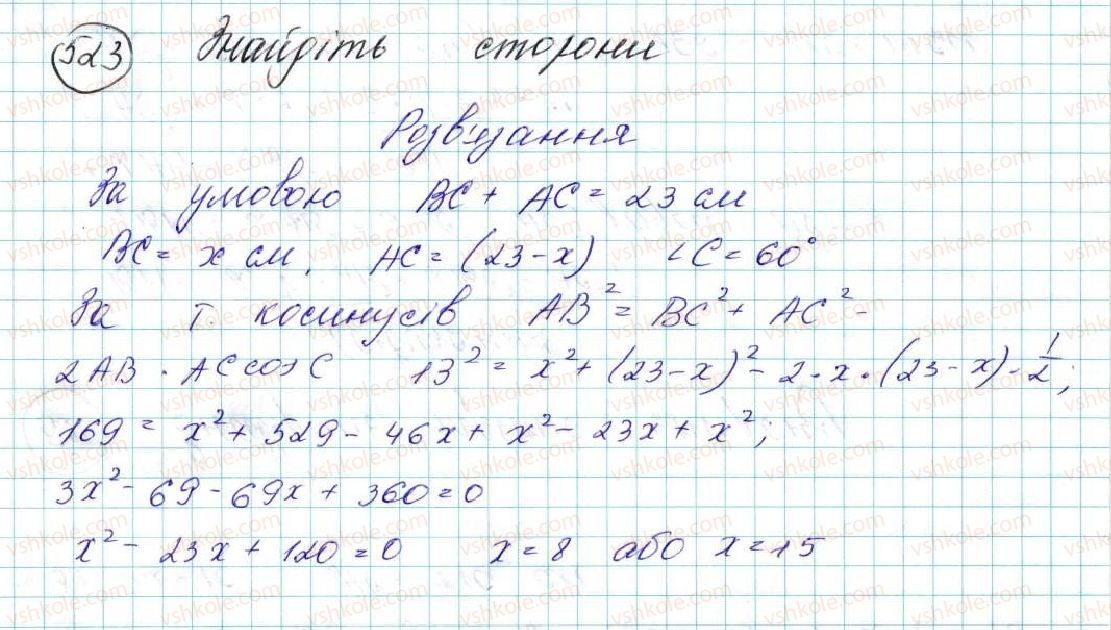 523 Знайдіть сторони
Розв'язання
За умовою BC + AC = 23 см
BC = x см, AC = (23 - x) ∠C = 60°
За т. косинусів AB² = BC² + AC² -
2AB · AC cos C 13² = x² + (23 - x)² - 2 · x · (23 - x) · 1/2;
169 = x² + 529 - 46x + x² - 23x + x²;
3x² - 69 - 69x + 360 = 0
x² - 23x + 120 = 0 x = 8 або x = 15
vshkole.com